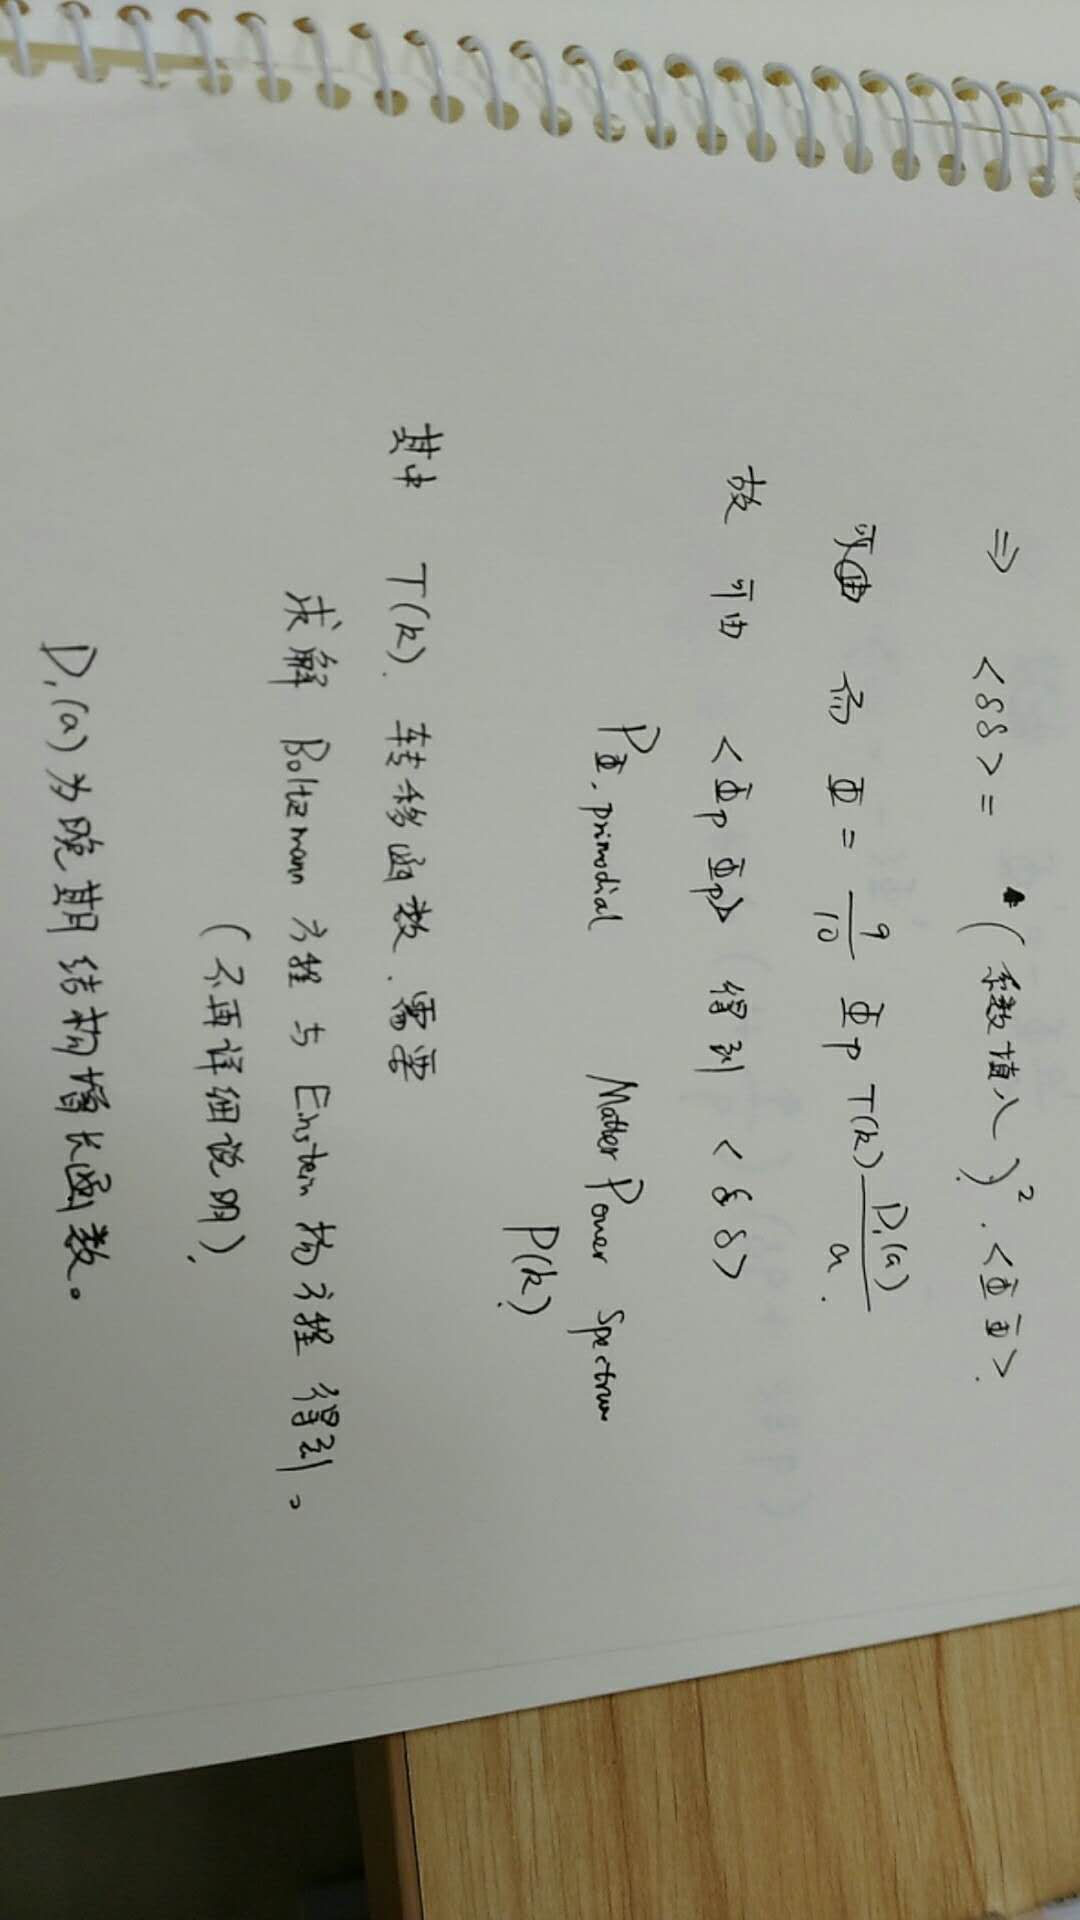 ⇒ <δδ> = (系数填入)². <Φ Φ>.
而 Φ = 9/10 Φp T(k) D₁(a)/a.
故 可由 <Φp Φp> 得到 <δ δ>
PΦ, primodial Matter Power Spectrum
P(k)
其中 T(k). 转移函数、需要
求解 Boltzmann 方程 与 Einstein 场方程 得到。
(不再详细说明)
D₁(a)为晚期结构增长函数。